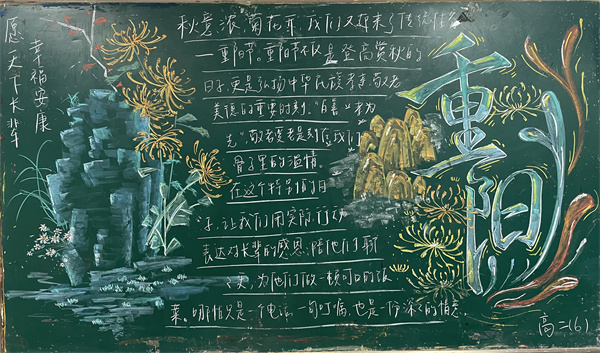 愿天下长辈
幸福安康
秋意浓,菊花开,我们又迎来了传统佳节
—重阳节。重阳节不仅是登高赏秋的
日子,更是弘扬中华民族孝亲敬老
美德的重要时刻。"百善孝为
先",敬老爱老是刻在我们
骨子里的温情。
在这个特别的日
子,让我们用实际行动
表达对长辈的感恩,陪他们聊
聊天,为他们做一顿可口的饭
菜。哪怕只是一个电话,一句叮嘱,也是一份深深的情意。
重阳
高二(6)